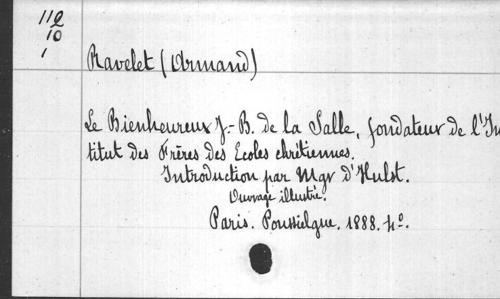 112
10
1
Ravelet (Armand)
Le Bienheureux J.-B. de la Salle, fondateur de l'Ins
titut des Frères des Ecoles chrétiennes.
Introduction par Mgr d'Hulst.
Ouvrage illustré.
Paris. Poussielgue. 1888. 4º.